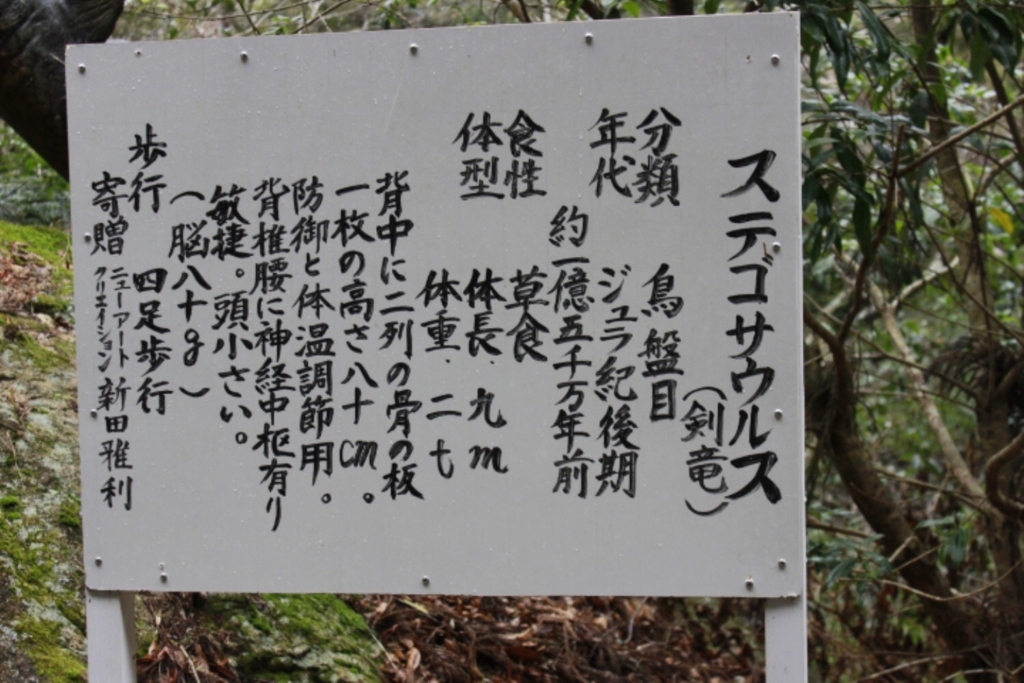 ステゴサウルス
(剣竜)
分類 鳥盤目
年代 ジュラ紀後期
約一億五千万年前
食性 草食
体型 体長.九m
体重.二t
背中に二列の骨の板
一枚の高さ八十cm。
防御と体温調節用。
背椎腰に神経中枢有り
敏捷。頭小さい。
(脳八十g)
歩行 四足歩行
寄贈 ニューアートクリエイション 新田雅利